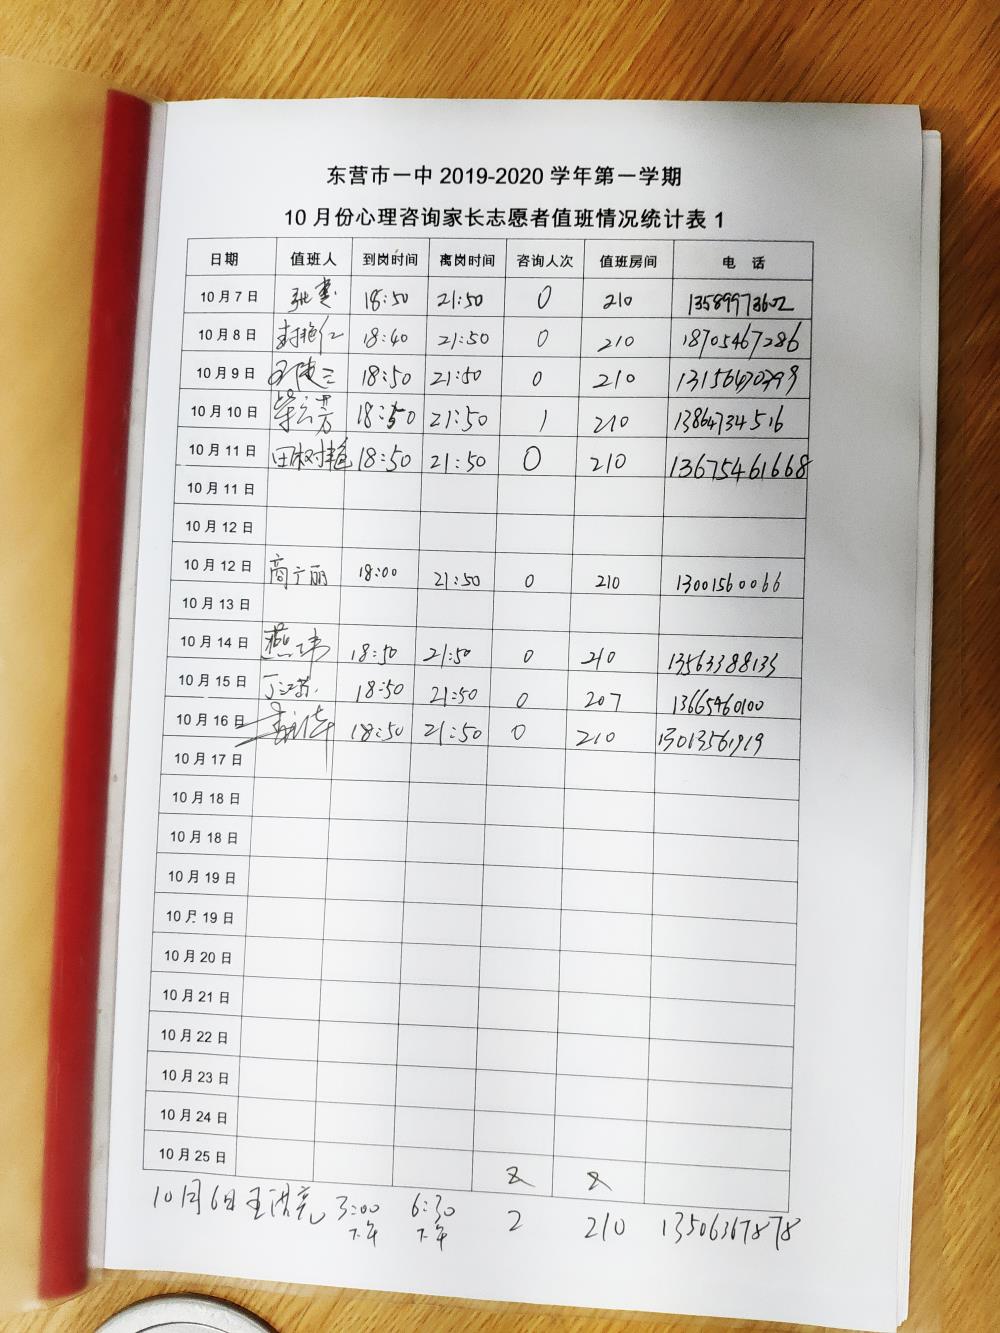 东营市一中 2019-2020 学年第一学期
10 月份心理咨询家长志愿者值班情况统计表 1
日期 值班人 到岗时间 离岗时间 咨询人次 值班房间 电 话
10 月 7 日 18:50 21:50 0 210 13589973602
10 月 8 日 封艳仁 18:40 21:50 0 210 18705467286
10 月 9 日 18:50 21:50 0 210
10 月 10 日 18:50 21:50 1 210 13864734516
10 月 11 日 田树艳 18:50 21:50 0 210 13675461668
10 月 11 日
10 月 12 日
10 月 12 日 商广丽 18:00 21:50 0 210 13001560066
10 月 13 日
10 月 14 日 燕玮 18:50 21:50 0 210 13563388133
10 月 15 日 18:50 21:50 0 207 13665460100
10 月 16 日 18:50 21:50 0 210 13013561919
10 月 17 日
10 月 18 日
10 月 18 日
10 月 19 日
10 月 19 日
10 月 20 日
10 月 21 日
10 月 22 日
10 月 23 日
10 月 24 日
10 月 25 日
10月6日 王洪亮 3:00 6:30 2 210 13506367878
下午 下午